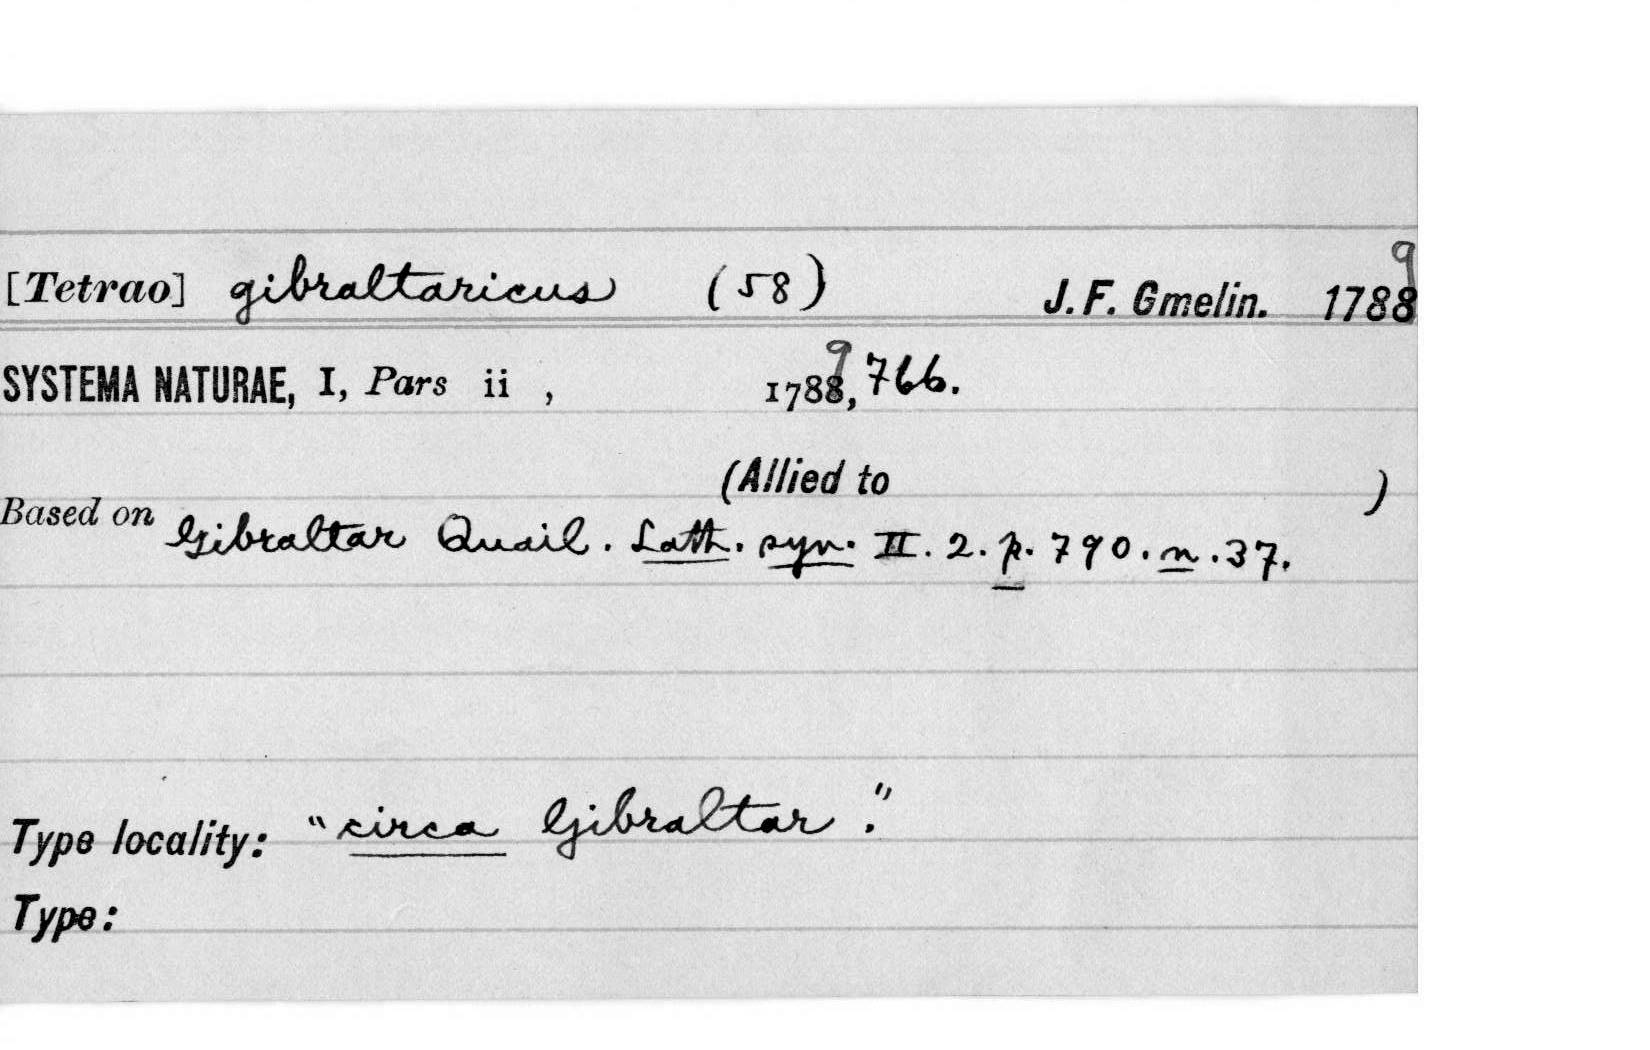 [Tetrao] gibraltaricus (58) J. F. Gmelin. 1788 9
SYSTEMA NATURAE, I, Pars ii , 1788 9, 766.
(Allied to )
Based on Gibraltar Quail. Lath. syn. II. 2. p. 790. n. 37.
Type locality: "circa Gibraltar."
Type: